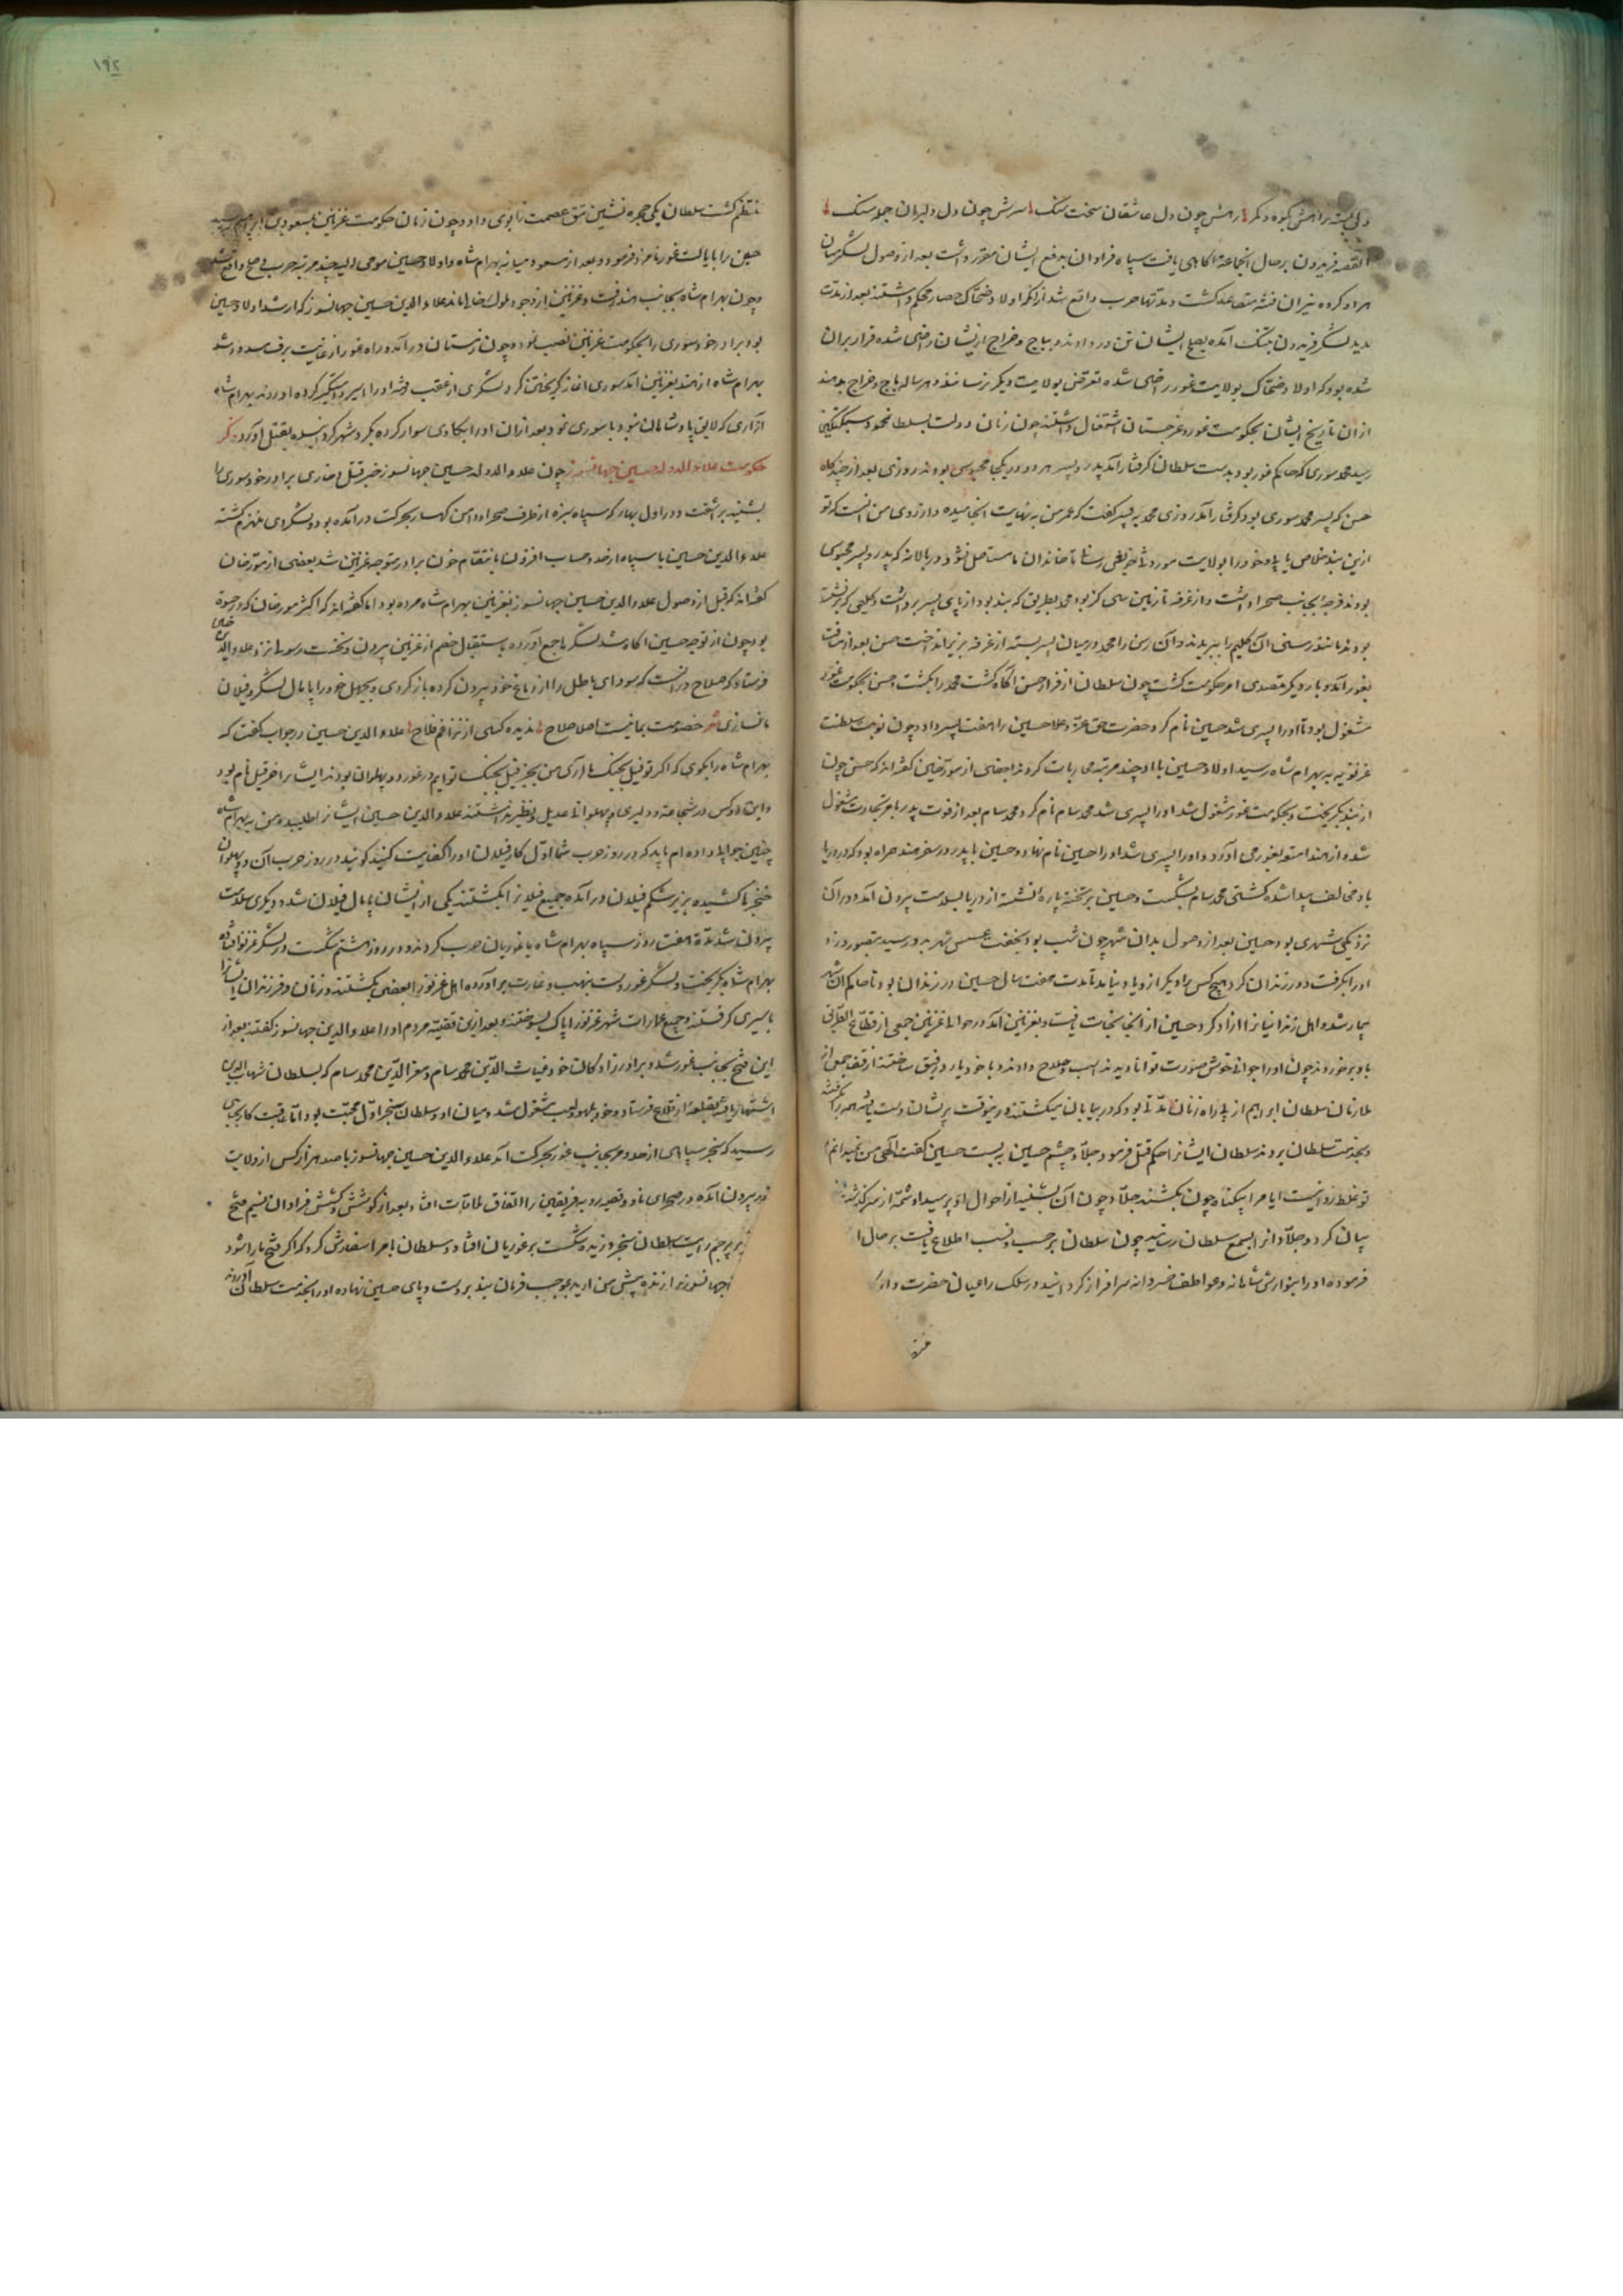 ولی بسته راهش بکوه و کمر رهش چون دل عاشقان سخت تنگ سرش چون دل دلبران جمله سنگ
القصه فریدون بر حال انجماعة اکاهی یافت سپاه فراوان بدفع ایشان مقرر داشت بعد از وصول لشکر میان
هر دو کروه نیران فتنه متصاعد کشت و مدتها حرب واقع شد از انکه اولاد ضحاک حصار محکم داشتند بعد از مدت
مدید لشکر فریدون بتنک آمده بصلح ایشان تن در دادند و بباج و خراج از ایشان راضی شده قرار بران
شده بود که اولاد ضحاک بولایت غور راضی شده تعرض بولایت دیگر نرسانند و هر ساله باج و خراج بدهند
از ان تاریخ ایشان بحکومت غور و غرجستان اشتغال داشتند چون زمان دولت بسلطان محمود سبکتکین
رسید محمد سوری که حاکم غور بود بدست سلطان کرفتار آمد پدر و پسر هر دو در یکجا محبوس بودند روزی بعد از چندکاه
حسن که پسر محمد سوری بود کرفتار آمد روزی محمد به پسر کفت که عمر من به نهایت انجامیده و ارزوی من انست که تو
ازین بند خلاص یابی و خود را بولایت موروثی خویش رسانی تا خاندان ما مستاصل نشود در بالاخانه که پدر و پسر محبوس
بودند فرجه بجانب صحرا داشت و از غرفه تا زمین سی کز بود محمد بطریق که بند بود از پای پسر برداشت و کلیمی که برنشسته
بودند مانند رسنی ان کلیم را ببریدند و آن رسن را محمد در میان پسر بسته از غرفه بزیر انداخت حسن بعد از مدت
بغور آمد و بار دیگر متصدی امر حکومت کشت چون سلطان از فرار حسن آگاه کشت محمد را بکشت حسن بحکومت غور
مشغول بود تا او را پسری شد حسین نام کرد حضرت حق عز و علا حسین را هفت پسر داد چون نوبت سلطنت
غزنویه به بهرام شاه رسید اولاد حسین با او چند مرتبه محاربات کردند اما بعضی از مورخین کفته اند که حسن چون
از بند بکریخت و بحکومت غور مشغول شد او را پسری شد محمد سام نام کرد محمد سام بعد از فوت پدر بامر تجارت مشغول
شده از هند امتعه بغور می آورد و او را پسری شد او را حسین نام نهاد و حسین با پدر در سفر هند همراه بود که در دریا
باد مخالف پیدا شده کشتی محمد سام بشکست و حسین بر تخته پاره نشسته از دریا بسلامت بیرون آمد و در آن
نزدیکی شهری بود حسین بعد از وصول بدان شهر چون شب بود بخفت عسس شهر بدو رسید بتصور دزد
او را بکرفت و در زندان کرد هیچ کس بار دیگر از و یاد نیامد تا مدت هفت سال حسین در زندان بود تا حاکم ان شهر
بیمار شد و اهل زندانیان را ازاد کرد حسین از آنجا نجات یافت و بغزنین آمد در حوالی غزنین جمعی از قطاع الطریق
باو برخوردند چون او را جوانی خوش صورت توانا دیدند اسب و سلاح دادند و با خود یار و رفیق ساختند از قضا جمعی از
ملازمان سلطان ابراهیم از پی راه زنان مدتی بود که در بیابان میکشتند درینوقت بر ایشان دست یافته همه را گرفته
بخدمت سلطان بردند سلطان ایشان را حکم قتل فرمود جلاد چشم حسین بر بست حسین کفت الهی من نمیدانم
تو غلط روا نیست ایا مرا بیکناه چون بکشند جلاد چون آن بشنید از احوال او پرسید او شمه از سر کذشت
بیان کرد و جلاد انرا بسمع سلطان رسانید چون سلطان بر حسب و نسب اطلاع یافت بر حال ا
فرموده او را بنوازش شاهانه و عواطف خسروانه سرافراز کردانید و در سلک اعیان حضرت داد
١٩٢
منتظم کشت سلطان یکی حجره نشین تتق عصمت را بوی داد و چون زمان حکومت غزنین بمسعود بن ابراهیم رسید
حسین را بایالت غور نامزد فرمود و بعد از مسعود میانه بهرام شاه و اولاد حسین موحی الیه چند مرتبه حرب و صلح واقع شد
و چون بهرام شاه بجانب هند رفت و غزنین از وجود ملوک خالی ماند علاء الدین حسین جهانسوز که ارشد اولاد حسین
بود برادر خود سوری را بحکومت غزنین نصب نمود و چون زمستان در آمد و راه غور از غایت برف مسدود شد
بهرام شاه از هند بغزنین آمد سوری اغاز کریختن کرد لشکری از عقب رفته او را اسیر و دستکیر کرده اوردند بهرام شاه
آزاری که لایق پادشاهان نبود با سوری نمود بعد ازان او را بکاوی سوار کرده بگرد شهر گردانیده بقتل آورد ذکر
حکومت علاء الدوله حسین جهانسوز چون علاء الدوله حسین جهانسوز خبر قتل و خاری برادر خود سوری را
بشنید براشفت و در اول بهار که سپاه سبزه از طرف صحرا و دامن کهسار بحرکت در آمده بود و لشکر دی منهزم کشته
علاء الدین حسین با سپاه از حد و حساب افزون بانتقام خون برادر متوجه غزنین شد بعضی از مورخان
کفته اند که قبل از وصول علاء الدین حسین جهانسوز بغزنین بهرام شاه مرده بود اما کفته اند که اکثر مورخان که در حیوة
بود چون از توجه حسین آگاه شد لشکر جمع آورده باستقبال خصم از غزنین بیرون و نخست رسولی نزد علاء الدین
حسین
فرستاد که صلاح در انست که سودای باطل را از دماغ خود بیرون کرده باز کردی و بجهل خود را پایمال لشکر و فیلان
ما نسازی شعر خصومت بما نیست اصلا صلاح ندیده کسی از نزاعم فلاح علاء الدین حسین در جواب کفت که
بهرام شاه را بکوی که اکر تو فیل بجنگ ما آری من بخر فیل بجنک تو ایم در غور دو پهلوان بودند ایشان را خر فیل نام بود
و این دو کس در شجاعت و دلیری و پهلوانی عدیل و نظیر نداشتند علاء الدین حسین ایشان را طلبید و من به بهرام شاه
چنین جوابی داده ام باید که در روز حرب شما اول کار فیلان او را کفایت کنید کویند در روز حرب آن دو پهلوان
خنجرها کشیده بزیر شکم فیلان در آمده جمیع فیلان را بکشتند یکی از ایشان پایمال فیلان شد و دیگری سلامت
بیرون شد مدة هفت روز سپاه بهرام شاه با غوریان حرب کردند و در روز هشتم شکست در لشکر غزنو افتاده
بهرام شاه بگریخت و لشکر غور دست بنهب و غارت بر آورده اهل غزنو را بعضی بکشتند و زنان و فرزندان ایشان را
باسیری کرفتند و جمیع عمارات شهر غزنو را پاک بسوختند و بعد ازین قضیه مردم او را علاء الدین جهانسوز کفتند بعد از
این فتح بجانب غور شد و برادر زادکان خود غیاث الدین محمد سام و معز الدین محمد سام که بسلطان شهاب الدین
اشتهار یافته بقلعه از قلاع فرستاد و خود بلهو و لعب مشغول شد و میان او و سلطان سنجر اول محبت بود اما عاقبت کار بجایی
رسید که سنجر سپاهی از حد و مر بجانب غور بحرکت آمد علاء الدین حسین جهانسوز با صد هزار کس از ولایت
غور بیرون آمده در صحرای ناو و قصیه رو به فریقین را اتفاق ملاقات افتاد بعد از کوشش و کشش فراوان نسیم فتح
بر پرچم رایت سلطان سنجر وزید و شکست بر غوریان افتاد و سلطان با مرا سفارش کرد که اکر فتح ما را شود
جهانسوز را زنده پیش من ارید بموجب فرمان بند بر دست و پای حسین نهاده او را بخدمت سلطان آوردند